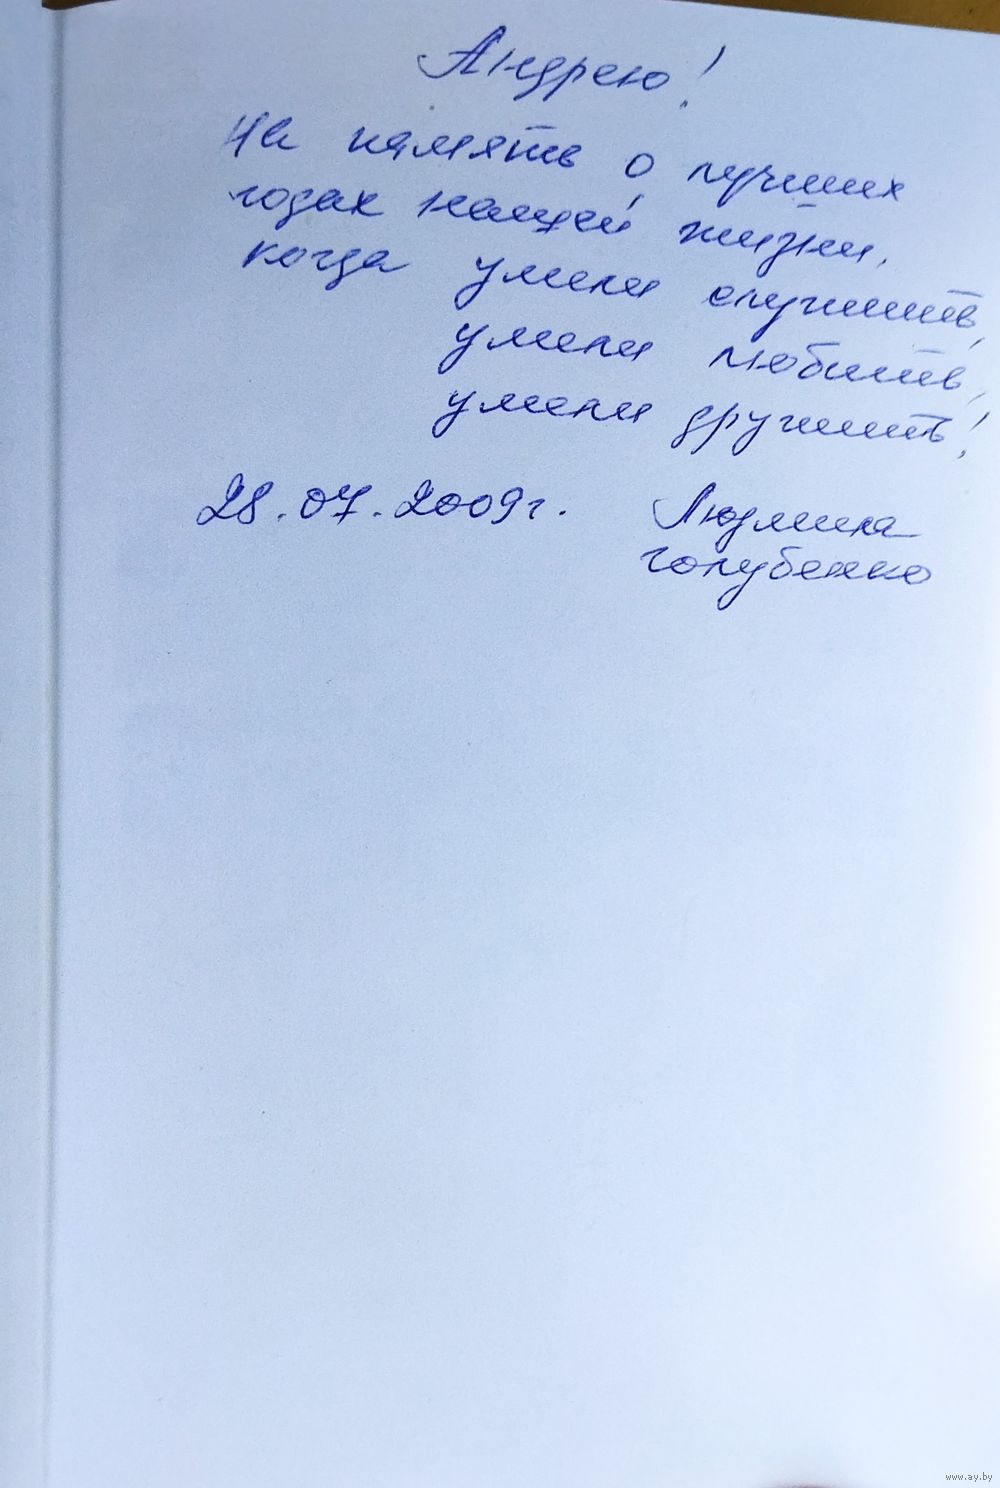 Андрею!
На память о лучших
годах нашей жизни,
когда умели служить,
умели любить,
умели дружить!
28.07.2009г. Людмила
Голубенко
www.ay.by